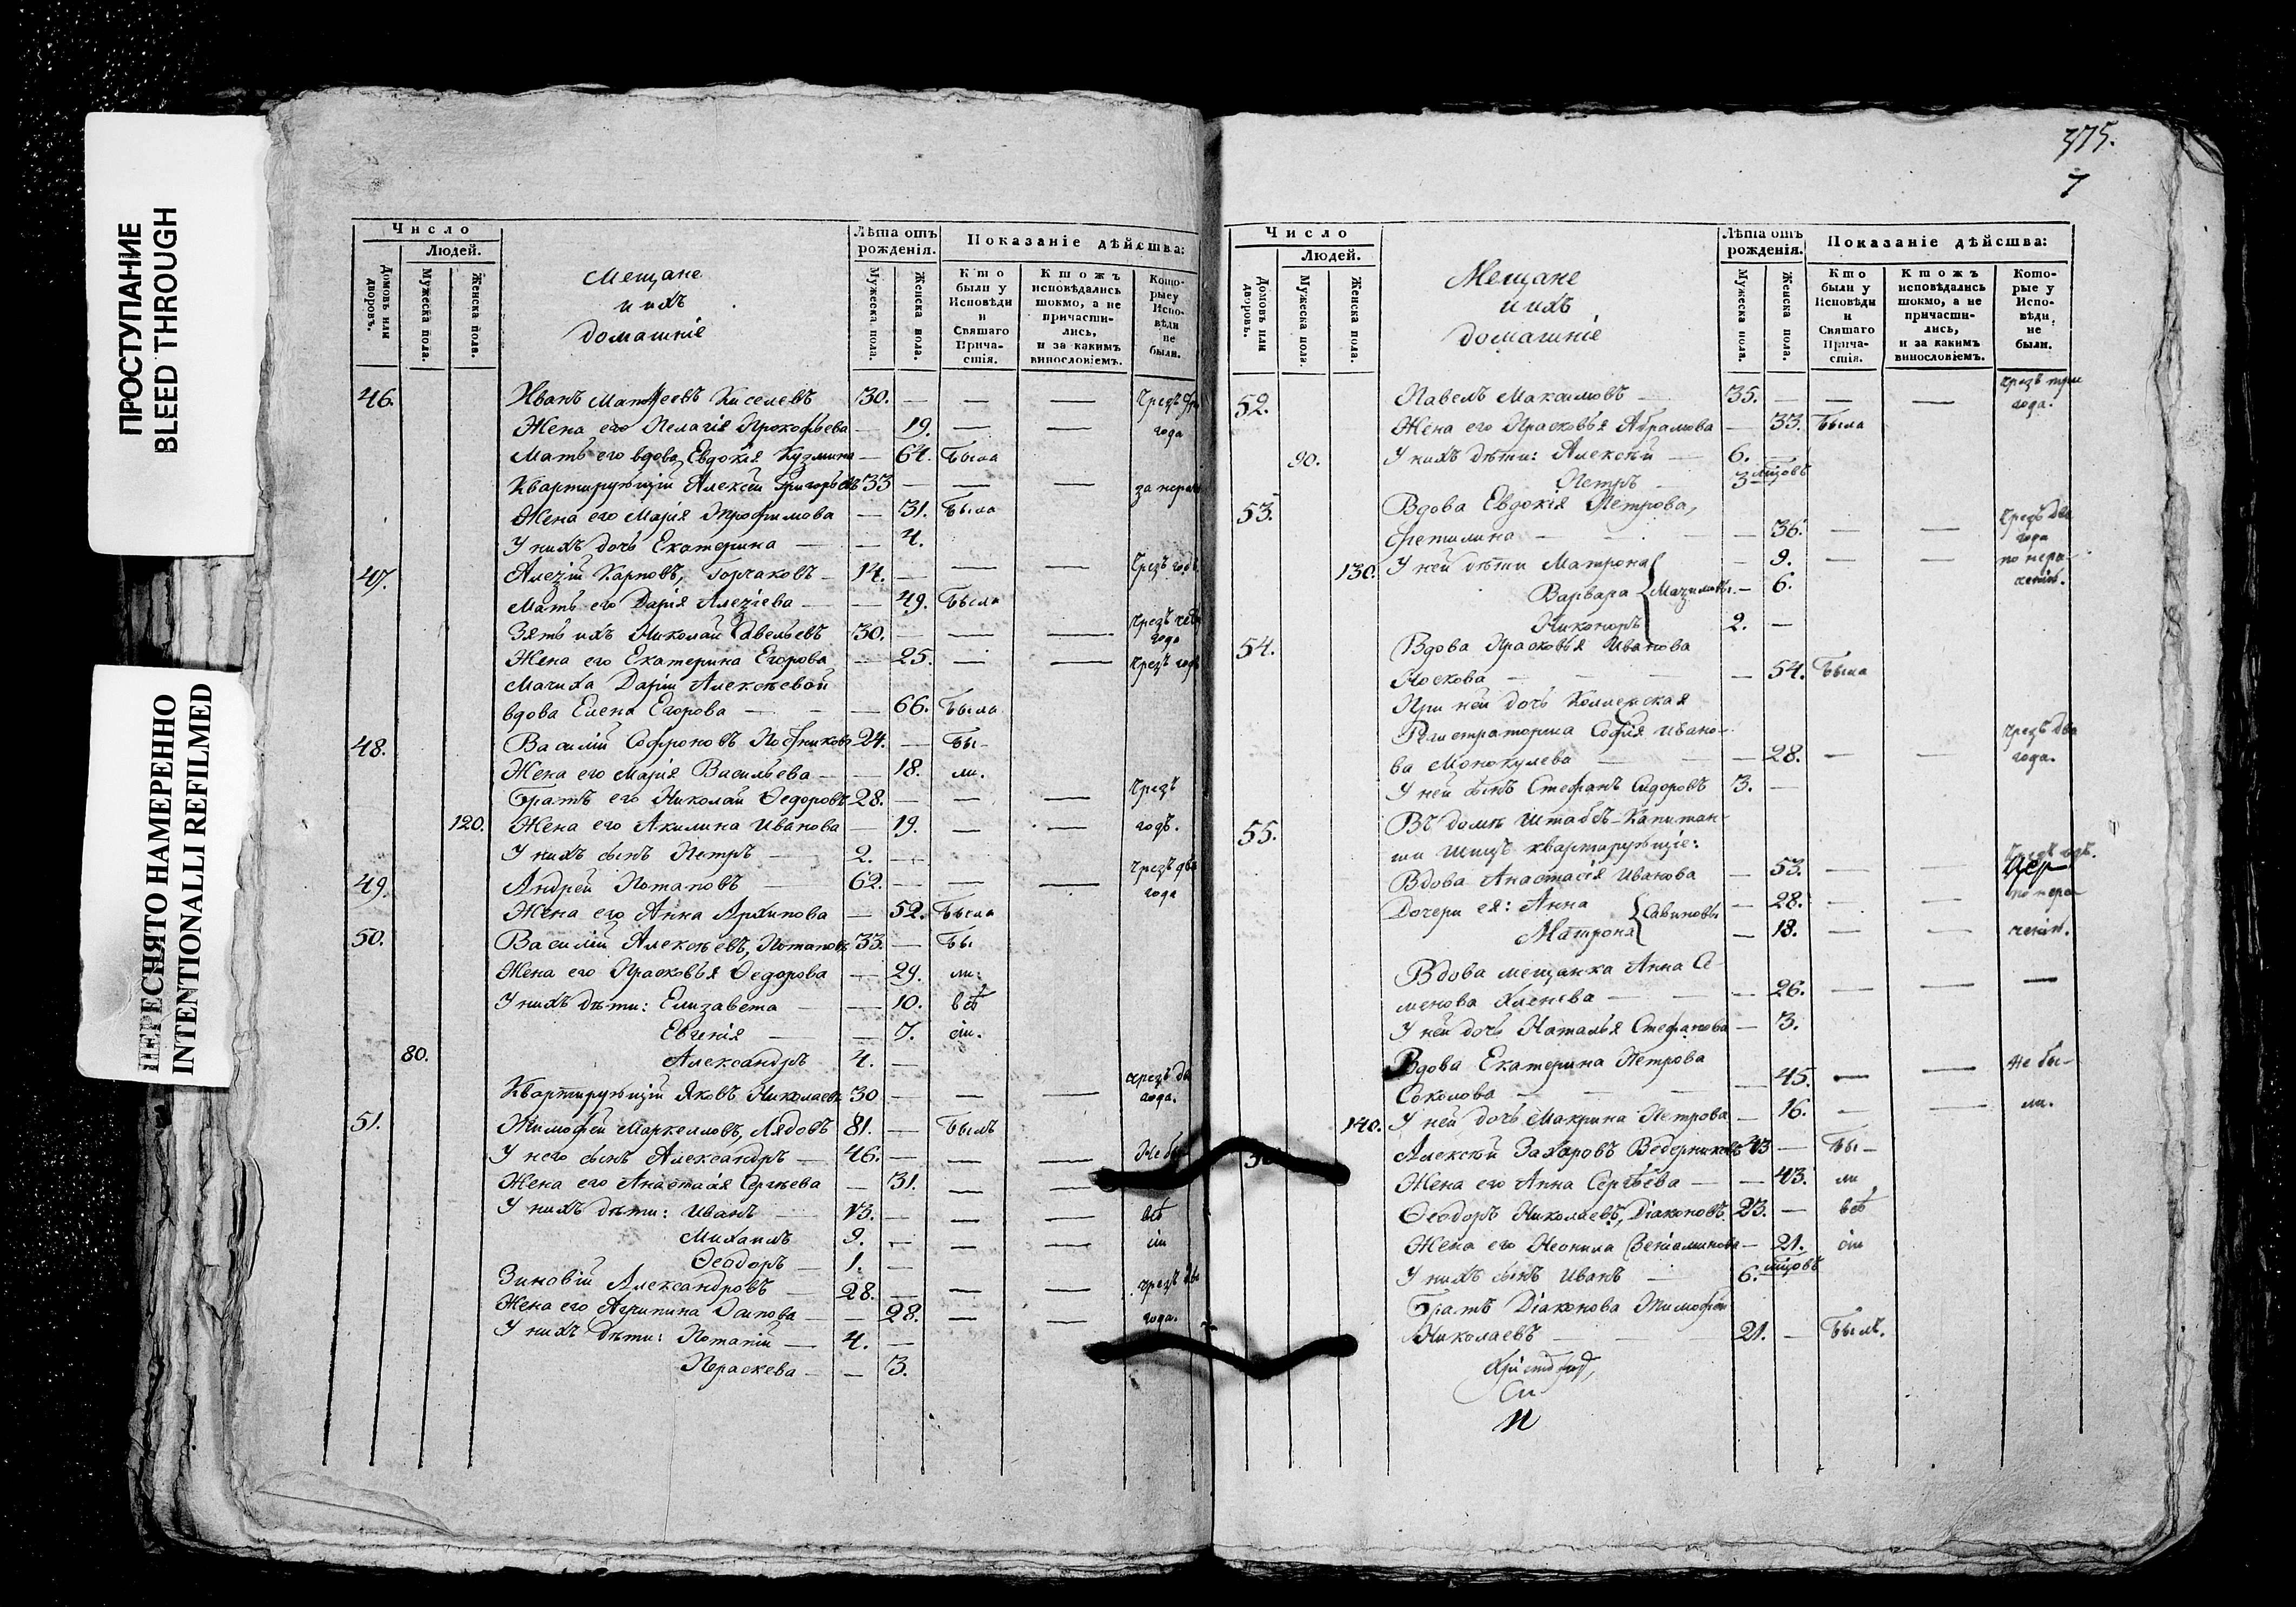 ПРОСТУПАНИЕ
BLEED THROUGH
ПЕРЕСНЯТО НАМЕРЕННО
INTENTIONALLI REFILMED
Число
Людей.
Домовъ или дворовъ.
Мужеска пола.
Женска пола.
Мещане
и ихъ
домашніе
Лѣта отъ рожденія.
Мужеска пола.
Женска пола.
Показаніе дѣйства:
Кто были у Исповѣди и Святаго Причастія.
Ктожъ исповѣдались токмо, а не причастились, и за какимъ винословіемъ.
Которые у Исповѣди не были.
46. Иванъ Матѳеевъ Киселевъ 30. — — —
Жена его Пелагія Прокофьева — 19. — — года
Мать его вдова Евдокія Кузмина — 64. Была
Квартирующій Алексѣй Григорьевъ 33 — — —
Жена его Марія Трофимова — 31. Была
У нихъ дочь Екатерина — — 4.
47. Алезій Карповъ, Горчаковъ — 14. — — — Чрезъ годъ
Мать его Дарія Алезіева — — 49. Была
Зять ихъ Николай Савельевъ 30. — — — года
Жена его Екатерина Егорова — 25. — — Чрезъ годъ
Мачиха Даріи Алексѣевой
вдова Елена Егорова — — — 66. Была
48. Василій Софроновъ 24. — Бы-
Жена его Марія Васильева — — 18. ли.
Братъ его Николай Ѳедоровъ 28. — — — Чрезъ
120. Жена его Акилина Иванова — 19. — — годъ.
У нихъ сынъ Петръ — 2. —
49. Андрей Потаповъ — 62. — — — чрезъ два года
Жена его Анна Архипова — 52. Была
50. Василій Алексѣевъ, Потаповъ 33. — Бы-
Жена его Прасковья Ѳедорова — 29. ли.
У нихъ дѣти: Елизавета — — 10. всѣ
Евгенія — — 7. сіи.
80. Александръ 4. —
Квартирующій Яковъ Николаевъ 30 — — — чрезъ два года.
51. Тимофей Маркелловъ, Лядовъ 81. — Былъ
У него сынъ Александръ — 46. — — — Не бы
Жена его Анастасія Сергѣева — 31. — —
У нихъ дѣти: Иванъ — 13. — — — всѣ
Михаилъ 9. — — — сіи
Ѳеодоръ — 1. —
Зиновій Александровъ — 28. — — — чрезъ два
Жена его Агрипина Осипова — — 28. — — года.
У нихъ дѣти: Потапій — 4. —
Параскева — — 3.
375.
7
Число
Людей.
Домовъ или дворовъ.
Мужеска пола.
Женска пола.
Мещане
и ихъ
домашніе
Лѣта отъ рожденія.
Мужеска пола.
Женска пола.
Показаніе дѣйства:
Кто были у Исповѣди и Святаго Причастія.
Ктожъ исповѣдались токмо, а не причастились, и за какимъ винословіемъ.
Которые у Исповѣди не были.
52. Павелъ Максимовъ — 35. — — — чрезъ три года.
Жена его Прасковья Абрамова — 33. Была
90. У нихъ дѣти: Алексѣй — 6. —
Петръ — 3 мцовъ
53. Вдова Евдокія Петрова,
— — 36. — — Чрезъ два года
130. У ней дѣти Матрона — 9. — — по нера-
Варвара — 6. дѣнію.
Никоноръ 2. —
54. Вдова Прасковья Иванова
Носкова — — — 54. Была
При ней дочь Коллежская
Регистраторша Софія Ивано-
ва Монокулева — — 28. — — чрезъ два года.
У ней сынъ Стефанъ Сидоровъ 3. —
55. Въ домѣ Штабсъ-Капитан-
ши квартирующіе:
Вдова Анастасія Иванова — 53. — —
Дочери ея: Анна Савиновы — 28. — — по нера-
Матрона — 18. — —
Вдова мещанка Анна Се-
менова — — 26. — — —
У ней дочь Наталья Стефанова — 3.
Вдова Екатерина Петрова Не бы-
Соколова — — 45. — —
140. У ней дочь Макрина Петрова — 16. — — ли.
Алексѣй Захаровъ Ведерниковъ 43 — Бы-
Жена его Анна Сергѣева — — 43. ли
Ѳеодоръ Николаевъ, Діаконовъ. 23. — всѣ
Жена его Неонила Веніаминова — 21. сіи
У нихъ сынъ Иванъ — 6. мцовъ
Братъ Діаконова Тимофей
Николаевъ — 21. — Былъ.